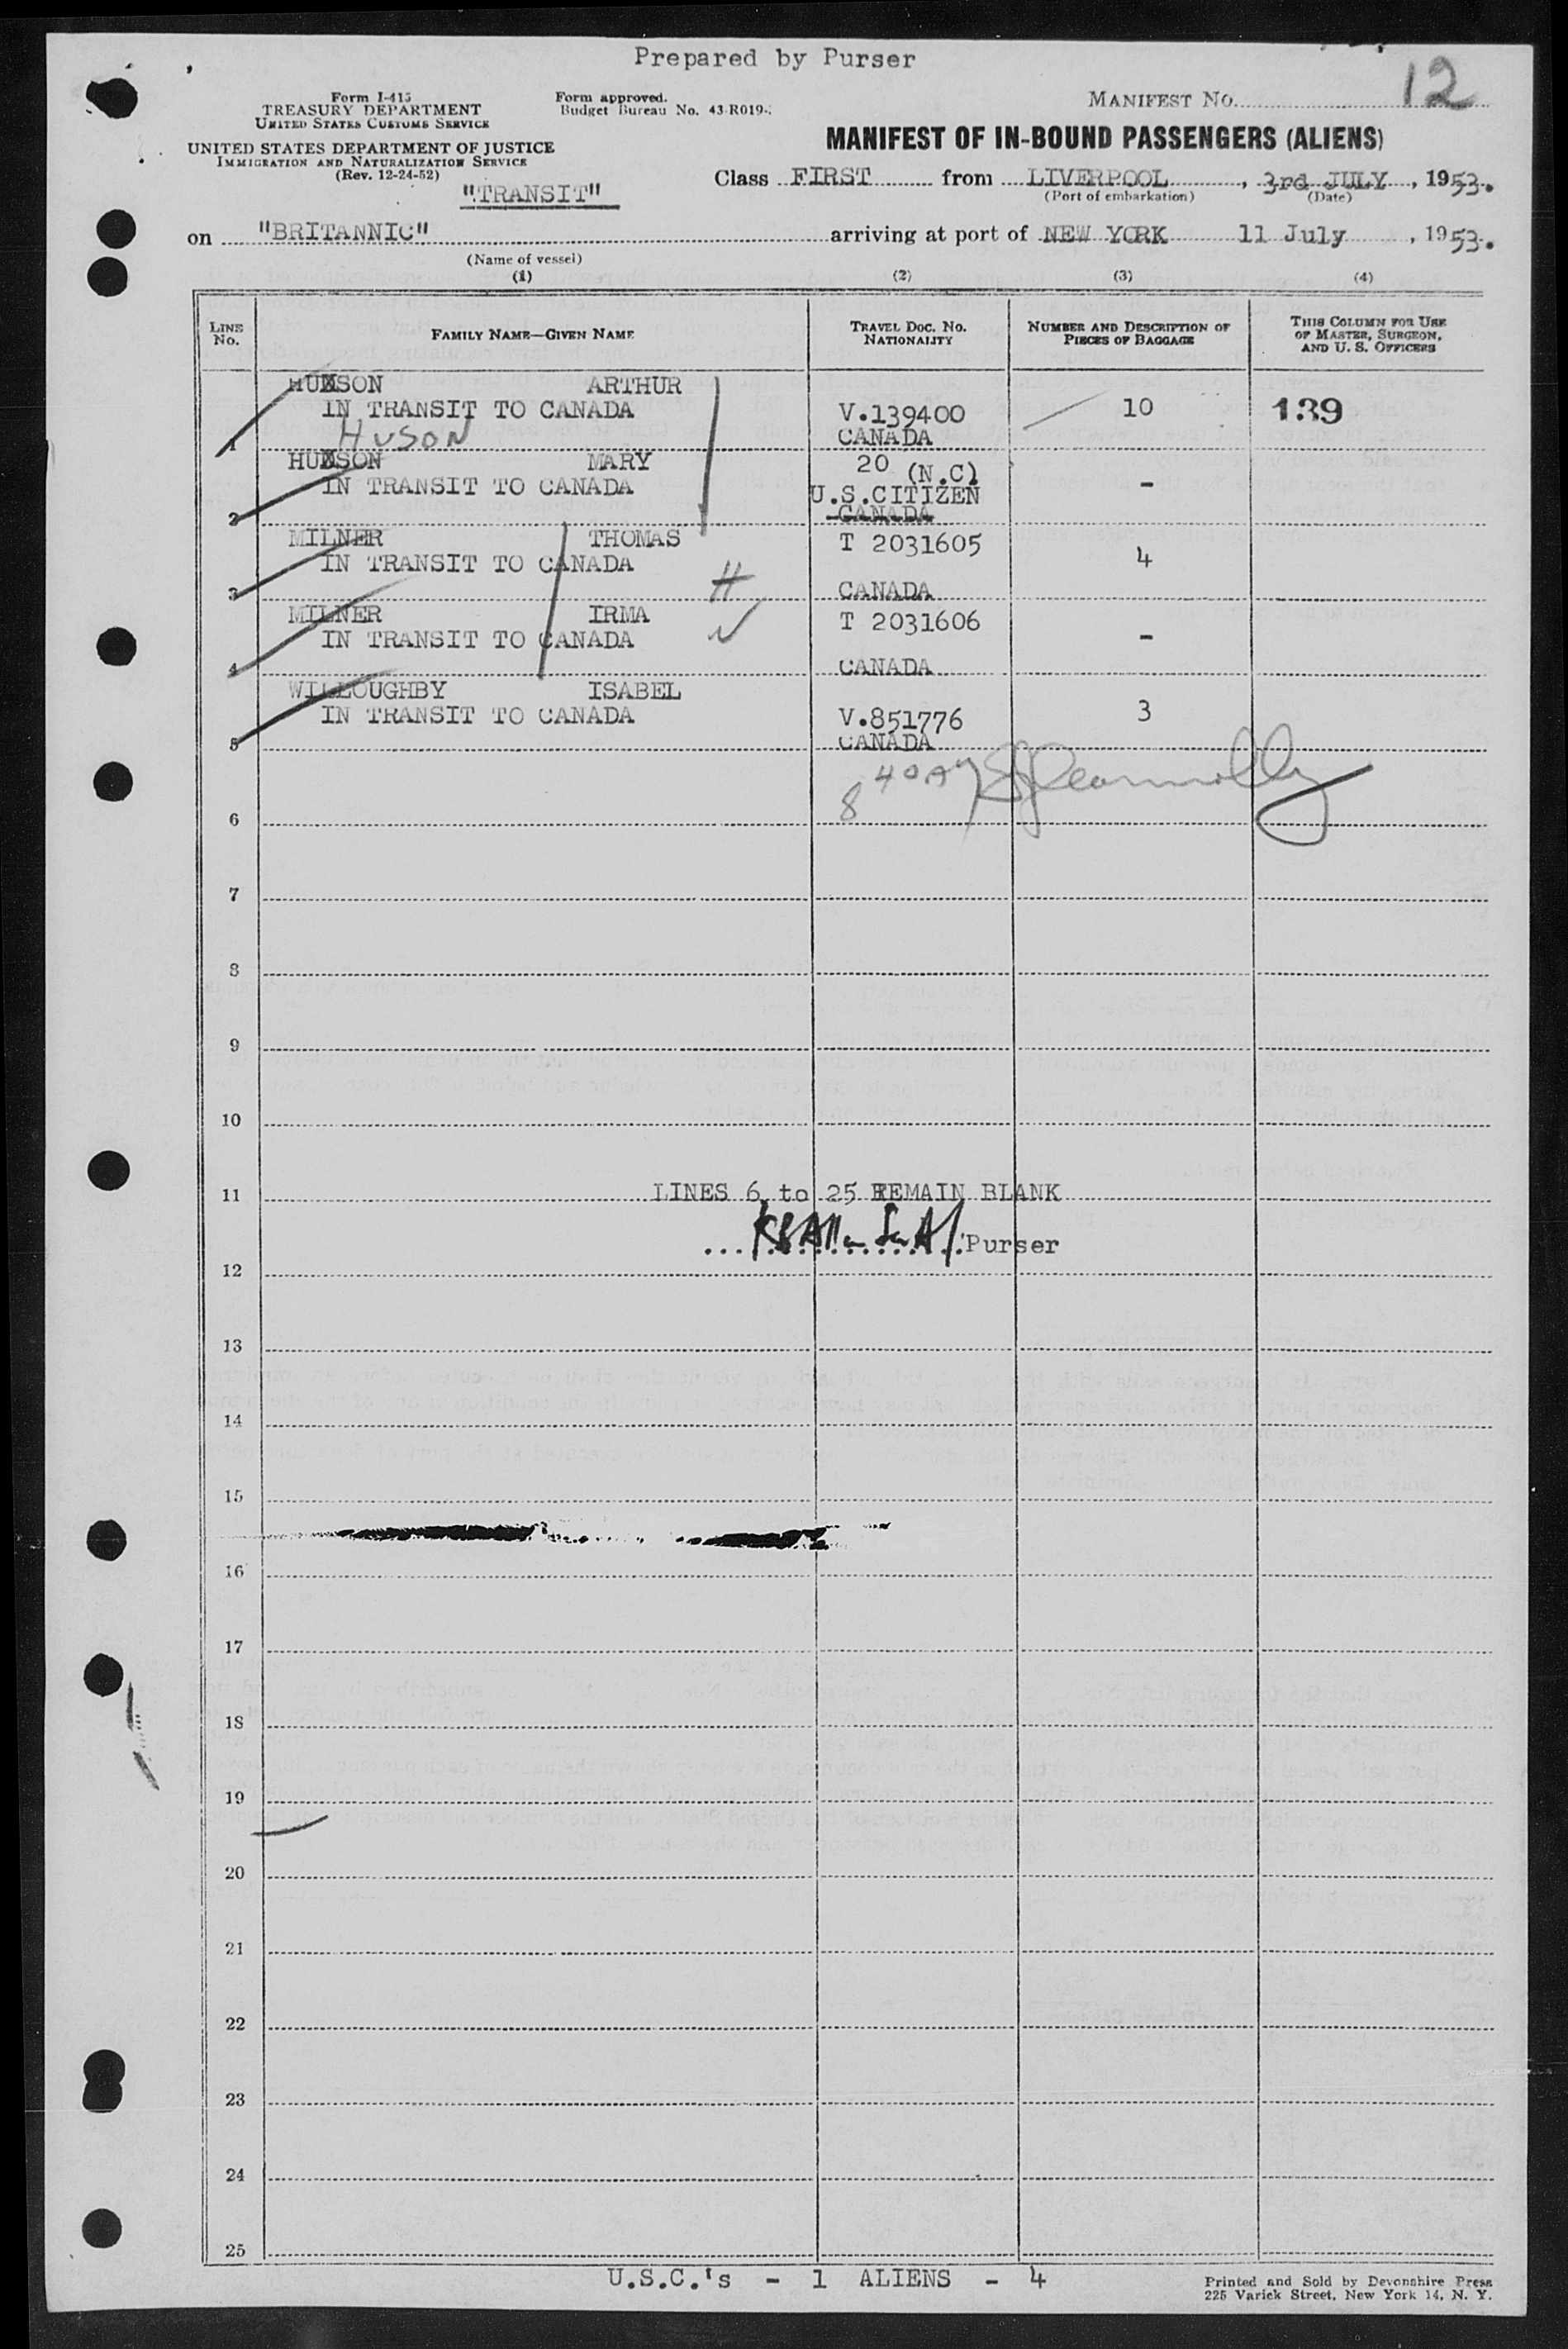 Prepared by Purser
12
Form I-415
TREASURY DEPARTMENT
UNITED STATES CUSTOMS SERVICE
Form approved.
Budget Bureau No. 43-R019-.
MANIFEST NO.
UNITED STATES DEPARTMENT OF JUSTICE
IMMIGRATION AND NATURALIZATION SERVICE
(Rev. 12-24-52)
MANIFEST OF IN-BOUND PASSENGERS (ALIENS)
"TRANSIT"
Class FIRST from LIVERPOOL, 3rd JULY, 1953.
(Port of embarkation) (Date)
on "BRITANNIC" arriving at port of NEW YORK 11 July, 1953.
(Name of vessel)
(1) (2) (3) (4)
LINE No. FAMILY NAME—GIVEN NAME TRAVEL DOC. NO. NATIONALITY NUMBER AND DESCRIPTION OF PIECES OF BAGGAGE THIS COLUMN FOR USE OF MASTER, SURGEON, AND U. S. OFFICERS
HUSON ARTHUR
IN TRANSIT TO CANADA V.139400 10 139
1 HUSON CANADA
HUSON MARY 20 (N.C)
IN TRANSIT TO CANADA U.S.CITIZEN -
2 CANADA
MILNER THOMAS T 2031605
IN TRANSIT TO CANADA 4
3 H CANADA
MILNER IRMA T 2031606
IN TRANSIT TO CANADA -
4 CANADA
WILLOUGHBY ISABEL
IN TRANSIT TO CANADA V.851776 3
5 CANADA
8
6
7
8
9
10
11 LINES 6 to 25 REMAIN BLANK
Purser
12
13
14
15
16
17
18
19
20
21
22
23
24
25
U.S.C.'s - 1 ALIENS - 4
Printed and Sold by Devonshire Press
225 Varick Street, New York 14, N. Y.